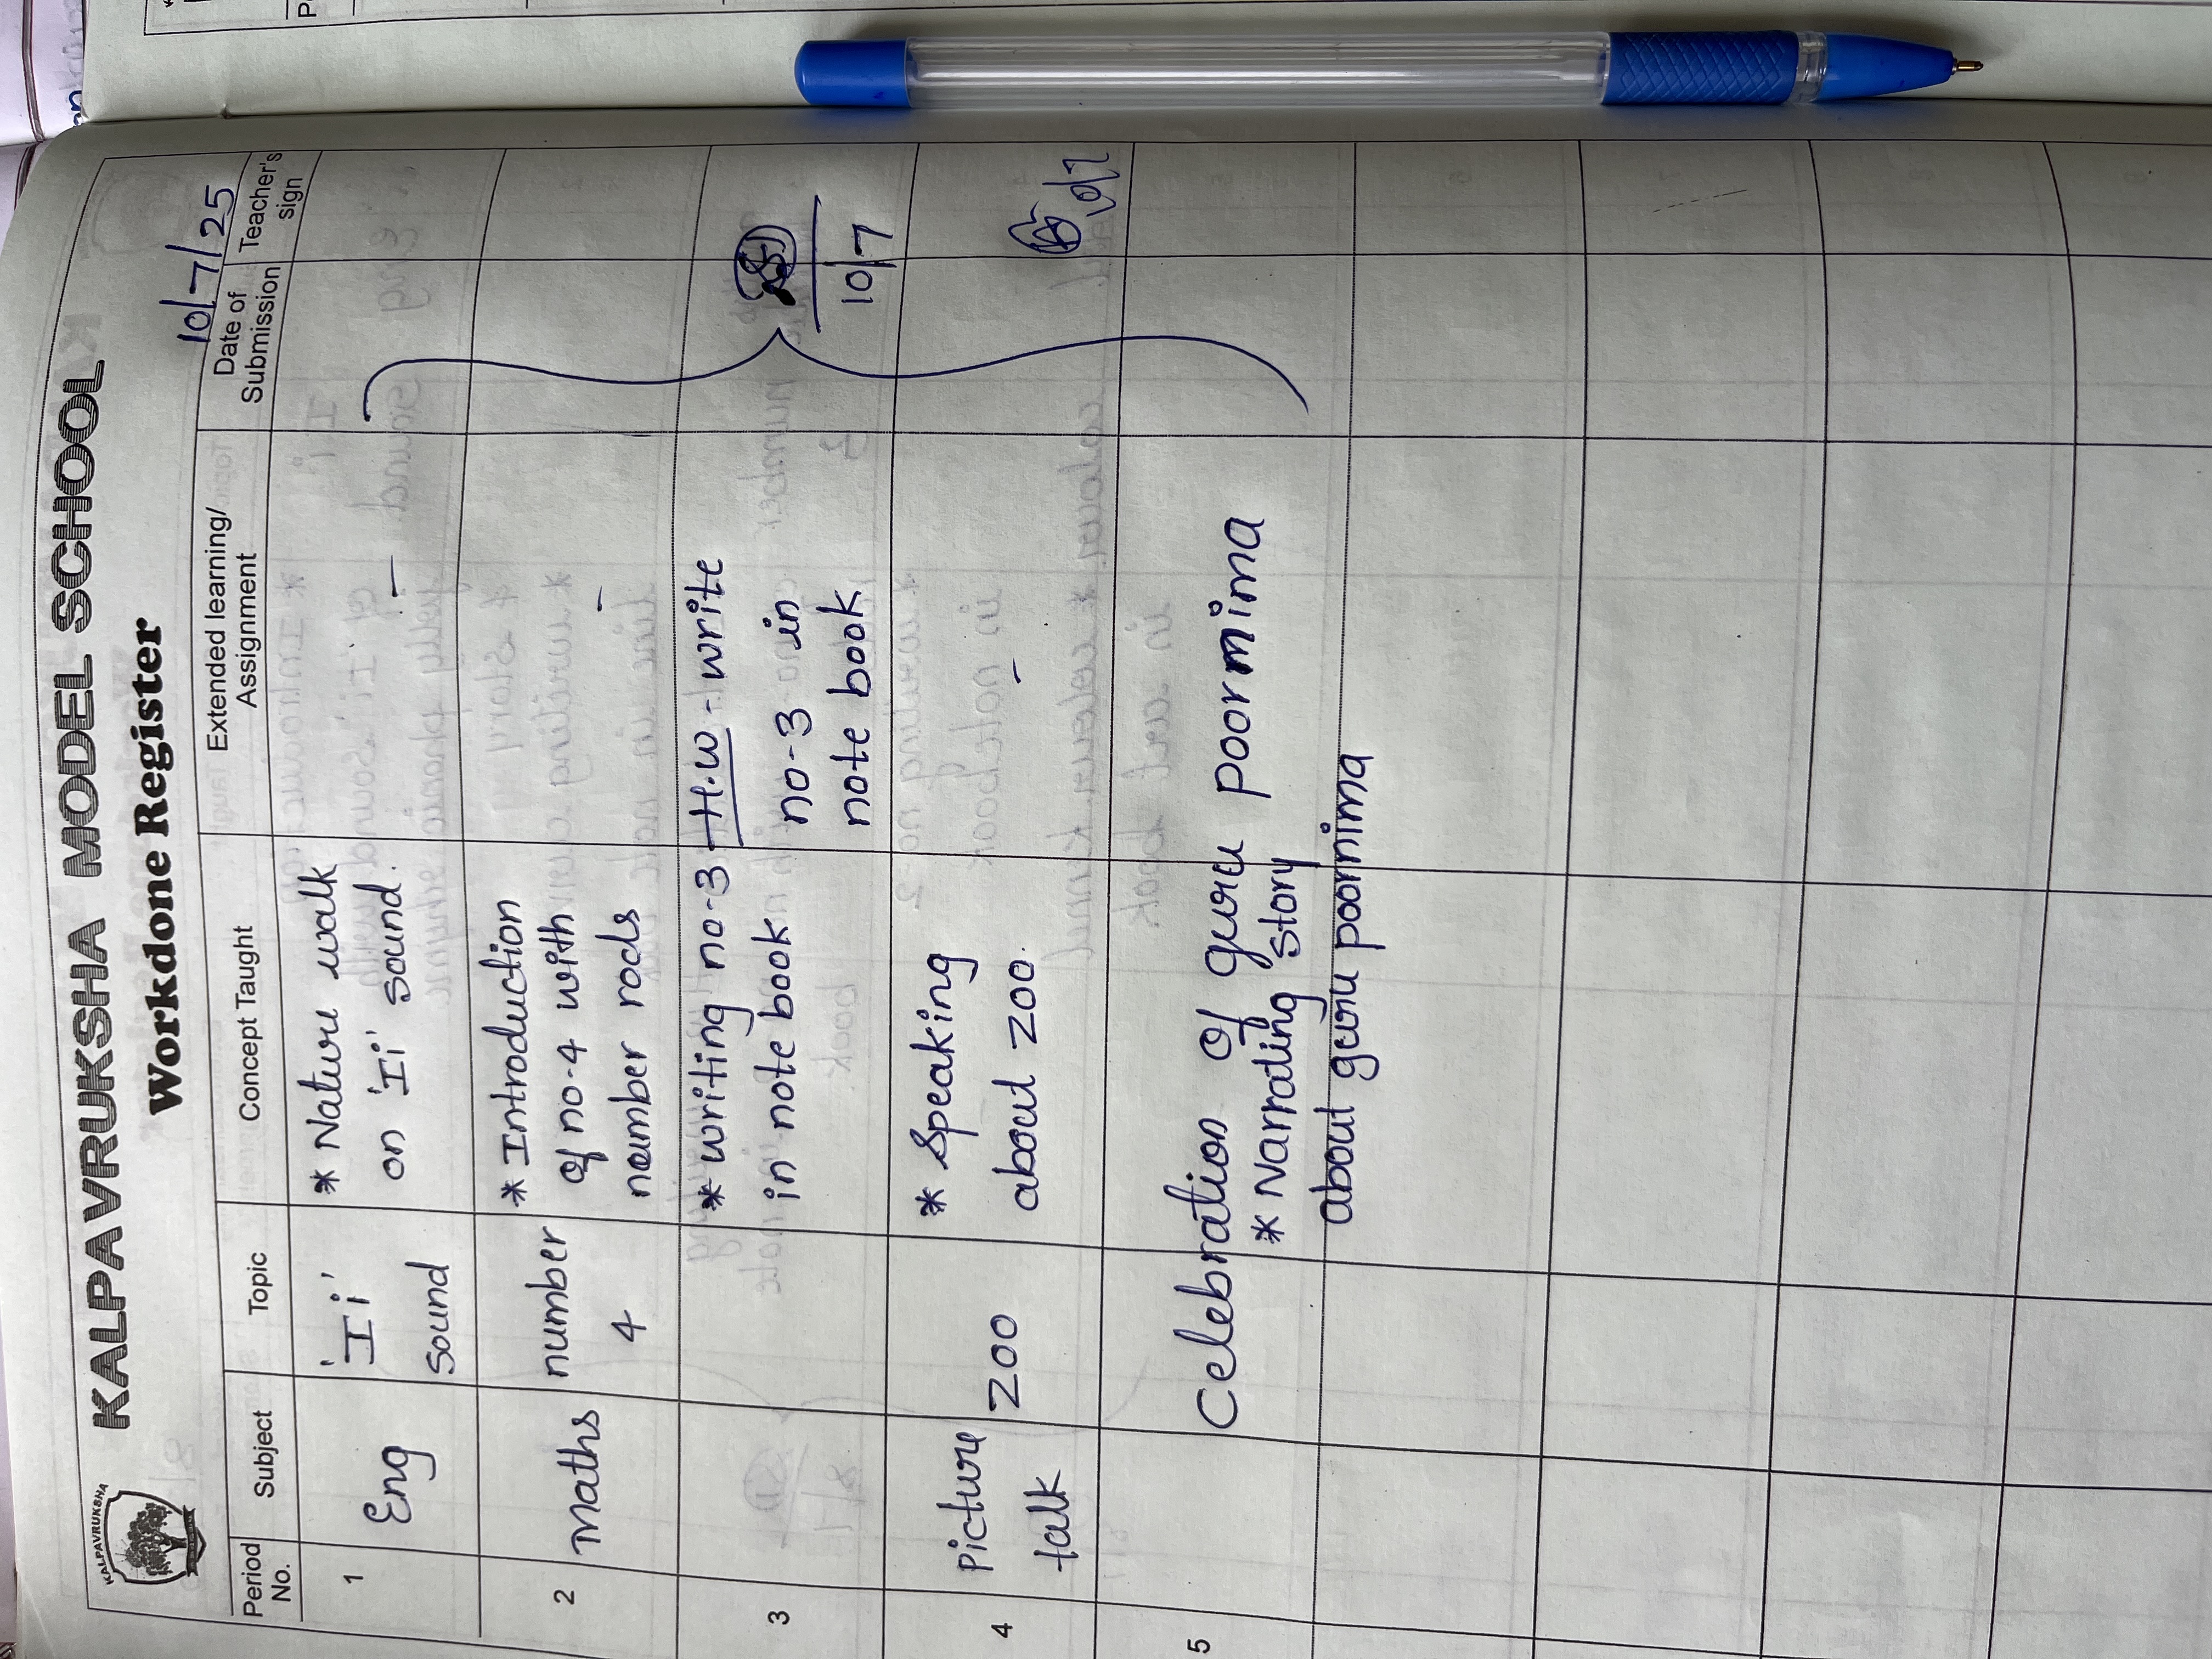 KALPAVRUKSHA
KALPAVRUKSHA MODEL SCHOOL
Workdone Register
10/7/25
Period No.
Subject
Topic
Concept Taught
Extended learning/ Assignment
Date of Submission
Teacher's sign
1
Eng
'Ii'
sound
* Nature walk
on 'Ii' sound.
-
2
Maths
number
4
* Introduction
of no-4 with
number rods
-
3
* writing no-3
in note book
H.W - write
no-3 in
note book
10/7
4
Picture
talk
ZOO
* Speaking
about zoo.
-
10/7
5
Celebration of guru poornima
* Narrating story
about guru poornima